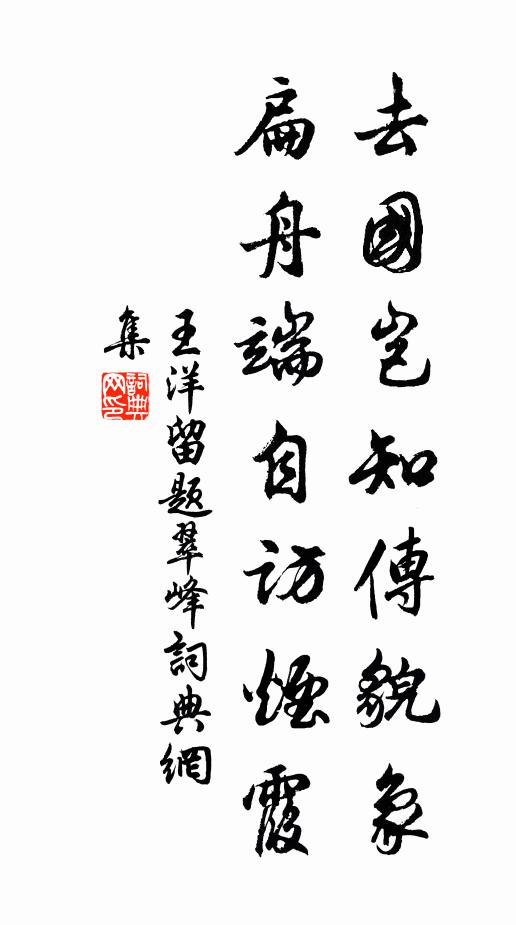 去國豈知傳貌象
扁舟端自訪煙霞
王洋留題翠峰詞典網
集
詞典
网印